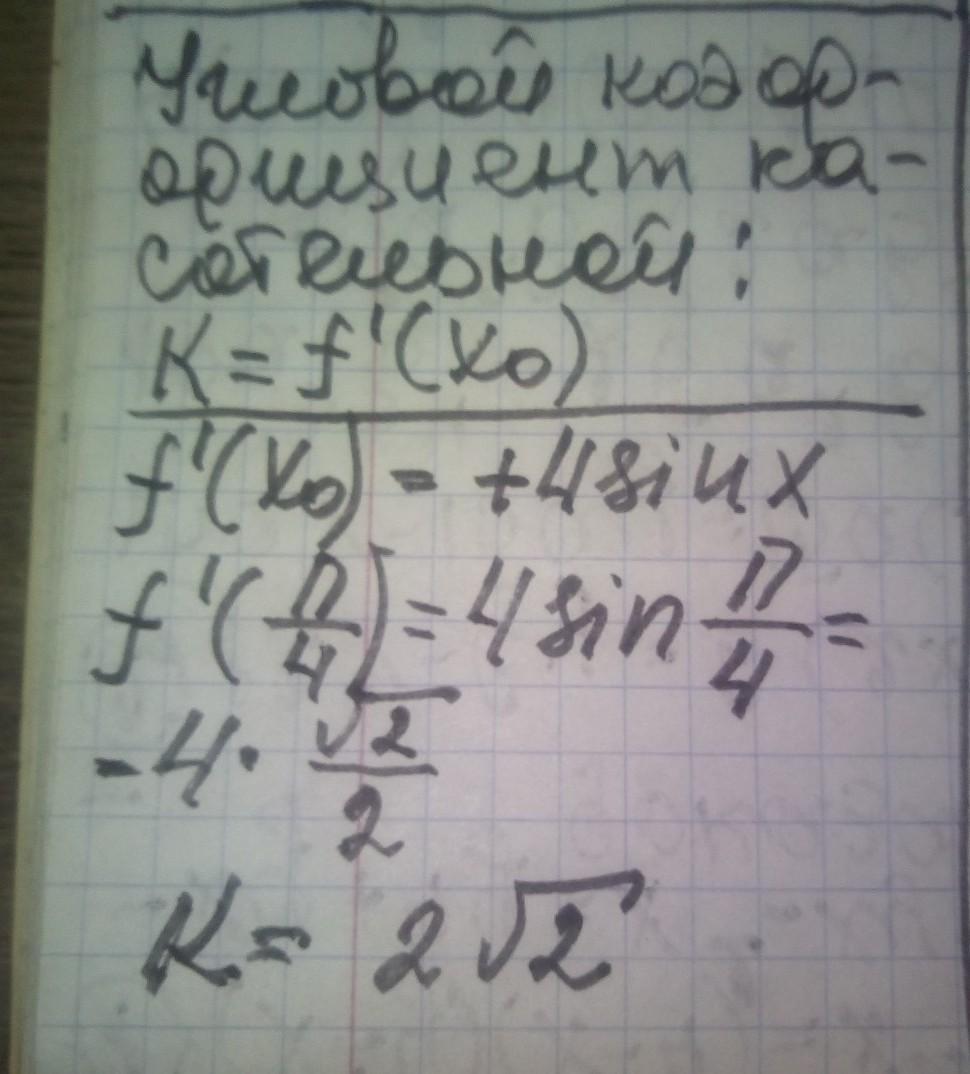 Угловой коэф-
фициент ка-
сательной:
K = f'(x₀)
f'(x₀) = +4 sin x
f'(π/4) = 4 sin π/4 =
= 4 · √2/2
K = 2√2